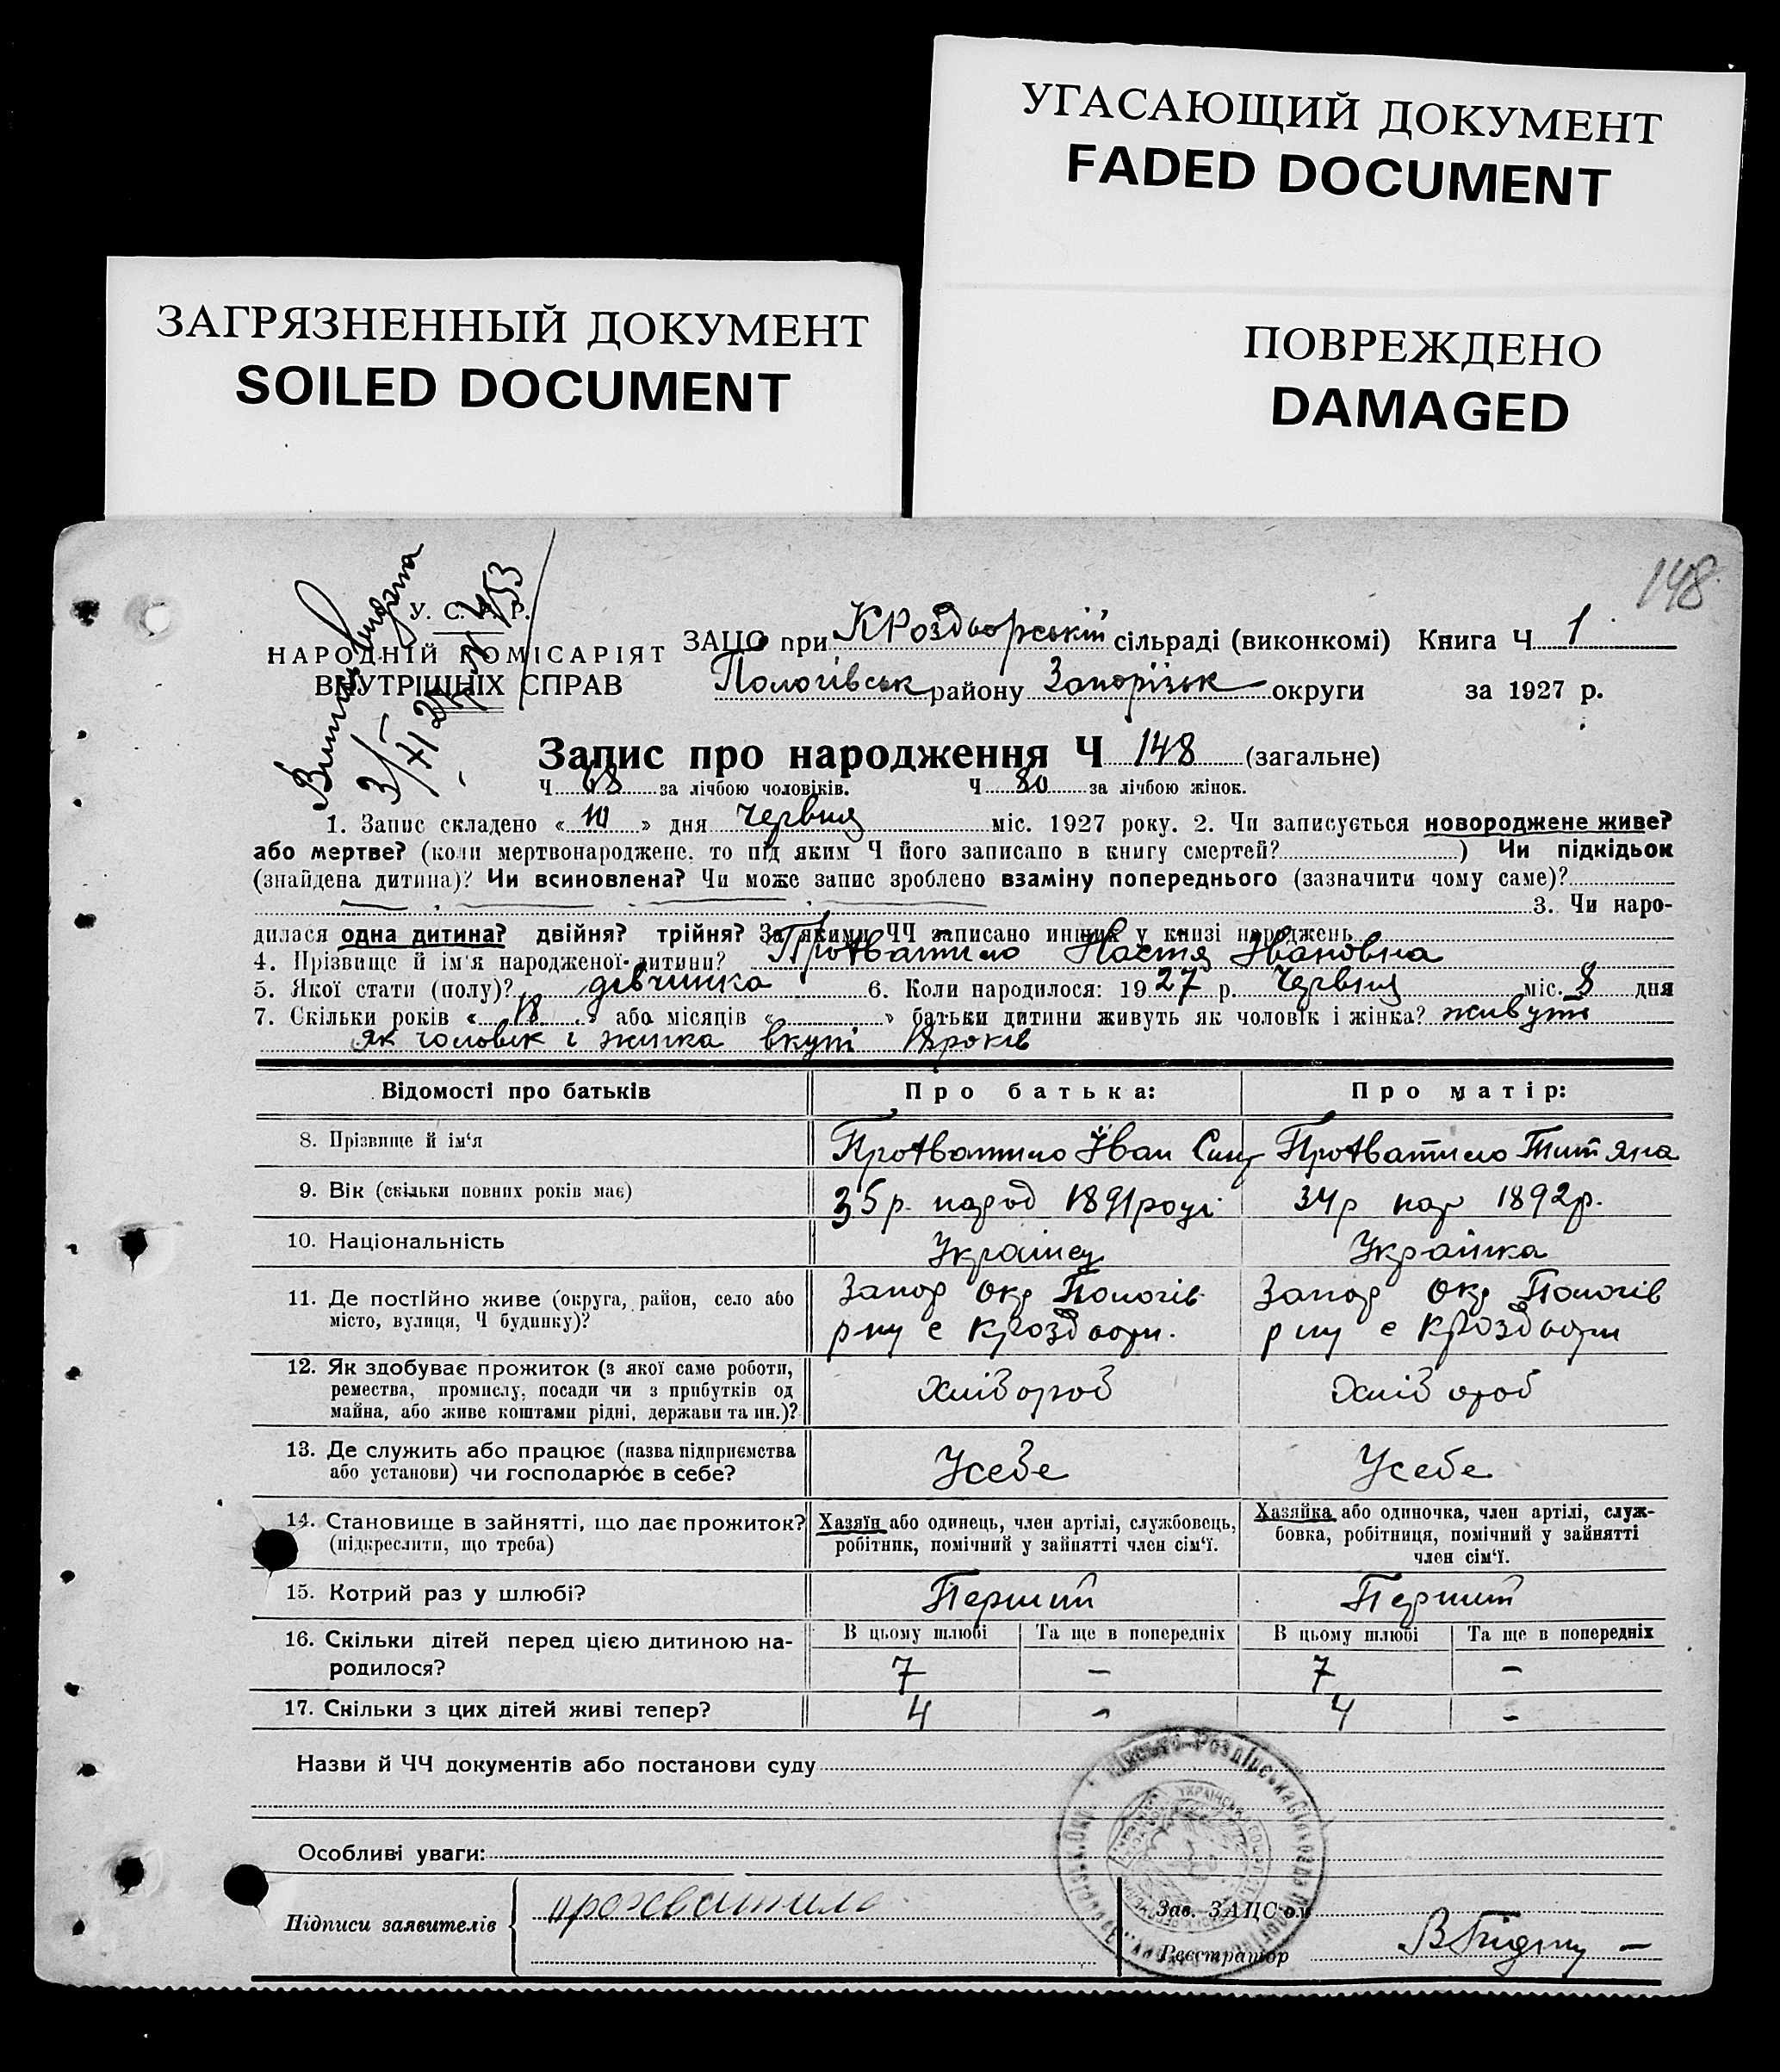 УГАСАЮЩИЙ ДОКУМЕНТ
FADED DOCUMENT
ЗАГРЯЗНЕННЫЙ ДОКУМЕНТ
SOILED DOCUMENT
ПОВРЕЖДЕНО
DAMAGED
148
У. С. Р. Р.
НАРОДНІЙ КОМІСАРІЯТ
ВНУТРІШНІХ СПРАВ
ЗАЦС при КРоздьорській сільраді (виконкомі) Книга Ч 1
Пологівськ району Запорізьк округи за 1927 р.
Запис про народження Ч 148 (загальне)
Ч 68 за лічбою чоловіків. Ч 80 за лічбою жінок.
1. Запис складено «10» дня червня міс. 1927 року. 2. Чи записується новороджене живе?
або мертве? (коли мертвонароджене, то під яким Ч його записано в книгу смертей? ) Чи підкідьок
(знайдена дитина)? Чи всиновлена? Чи може запис зроблено взаміну попереднього (зазначити чому саме)?
3. Чи наро-
дилася одна дитина? двійня? трійня? За якими ЧЧ записано инших у книзі народжень
4. Прізвище й ім'я народженої дитини? Прохватило Настя Івановна
5. Якої стати (полу)? дівчинка 6. Коли народилося: 1927 р. червня міс. 8 дня
7. Скільки років «18» або місяців « » батьки дитини живуть як чоловік і жінка? живуть
як чоловік і жинка вкупі 18 років
Відомості про батьків Про батька: Про матір:
8. Прізвище й ім'я Прохватило Іван Прохватило Титяна
9. Вік (скільки повних років має) 35 р. народ 1891 році 34 р нар 1892 р.
10. Національність Українец Українка
11. Де постійно живе (округа, район, село або Запор Окр Пологів Запор Окр Пологів
місто, вулиця, Ч будинку)? р-ну с КРоздори. р ну с КРоздори
12. Як здобуває прожиток (з якої саме роботи,
ремества, промислу, посади чи з прибутків од Хлібороб Хлібороб
майна, або живе коштами рідні, держави та ин.)?
13. Де служить або працює (назва підприємства Усебе Усебе
або установи) чи господарює в себе?
14. Становище в зайнятті, що дає прожиток? Хазяїн або одинець, член артілі, службовець, Хазяйка або одиночка, член артілі, служ-
(підкреслити, що треба) робітник, помічний у зайнятті член сім'ї. бовка, робітниця, помічний у зайнятті
член сім'ї.
15. Котрий раз у шлюбі? Перший Перший
16. Скільки дітей перед цією дитиною на- В цьому шлюбі Та ще в попередніх В цьому шлюбі Та ще в попередніх
родилося? 7 – 7 –
17. Скільки з цих дітей живі тепер? 4 - 4 -
Назви й ЧЧ документів або постанови суду
Особливі уваги:
Підписи заявителів прохватило
Зав. ЗАЦС'ом
Реєстратор